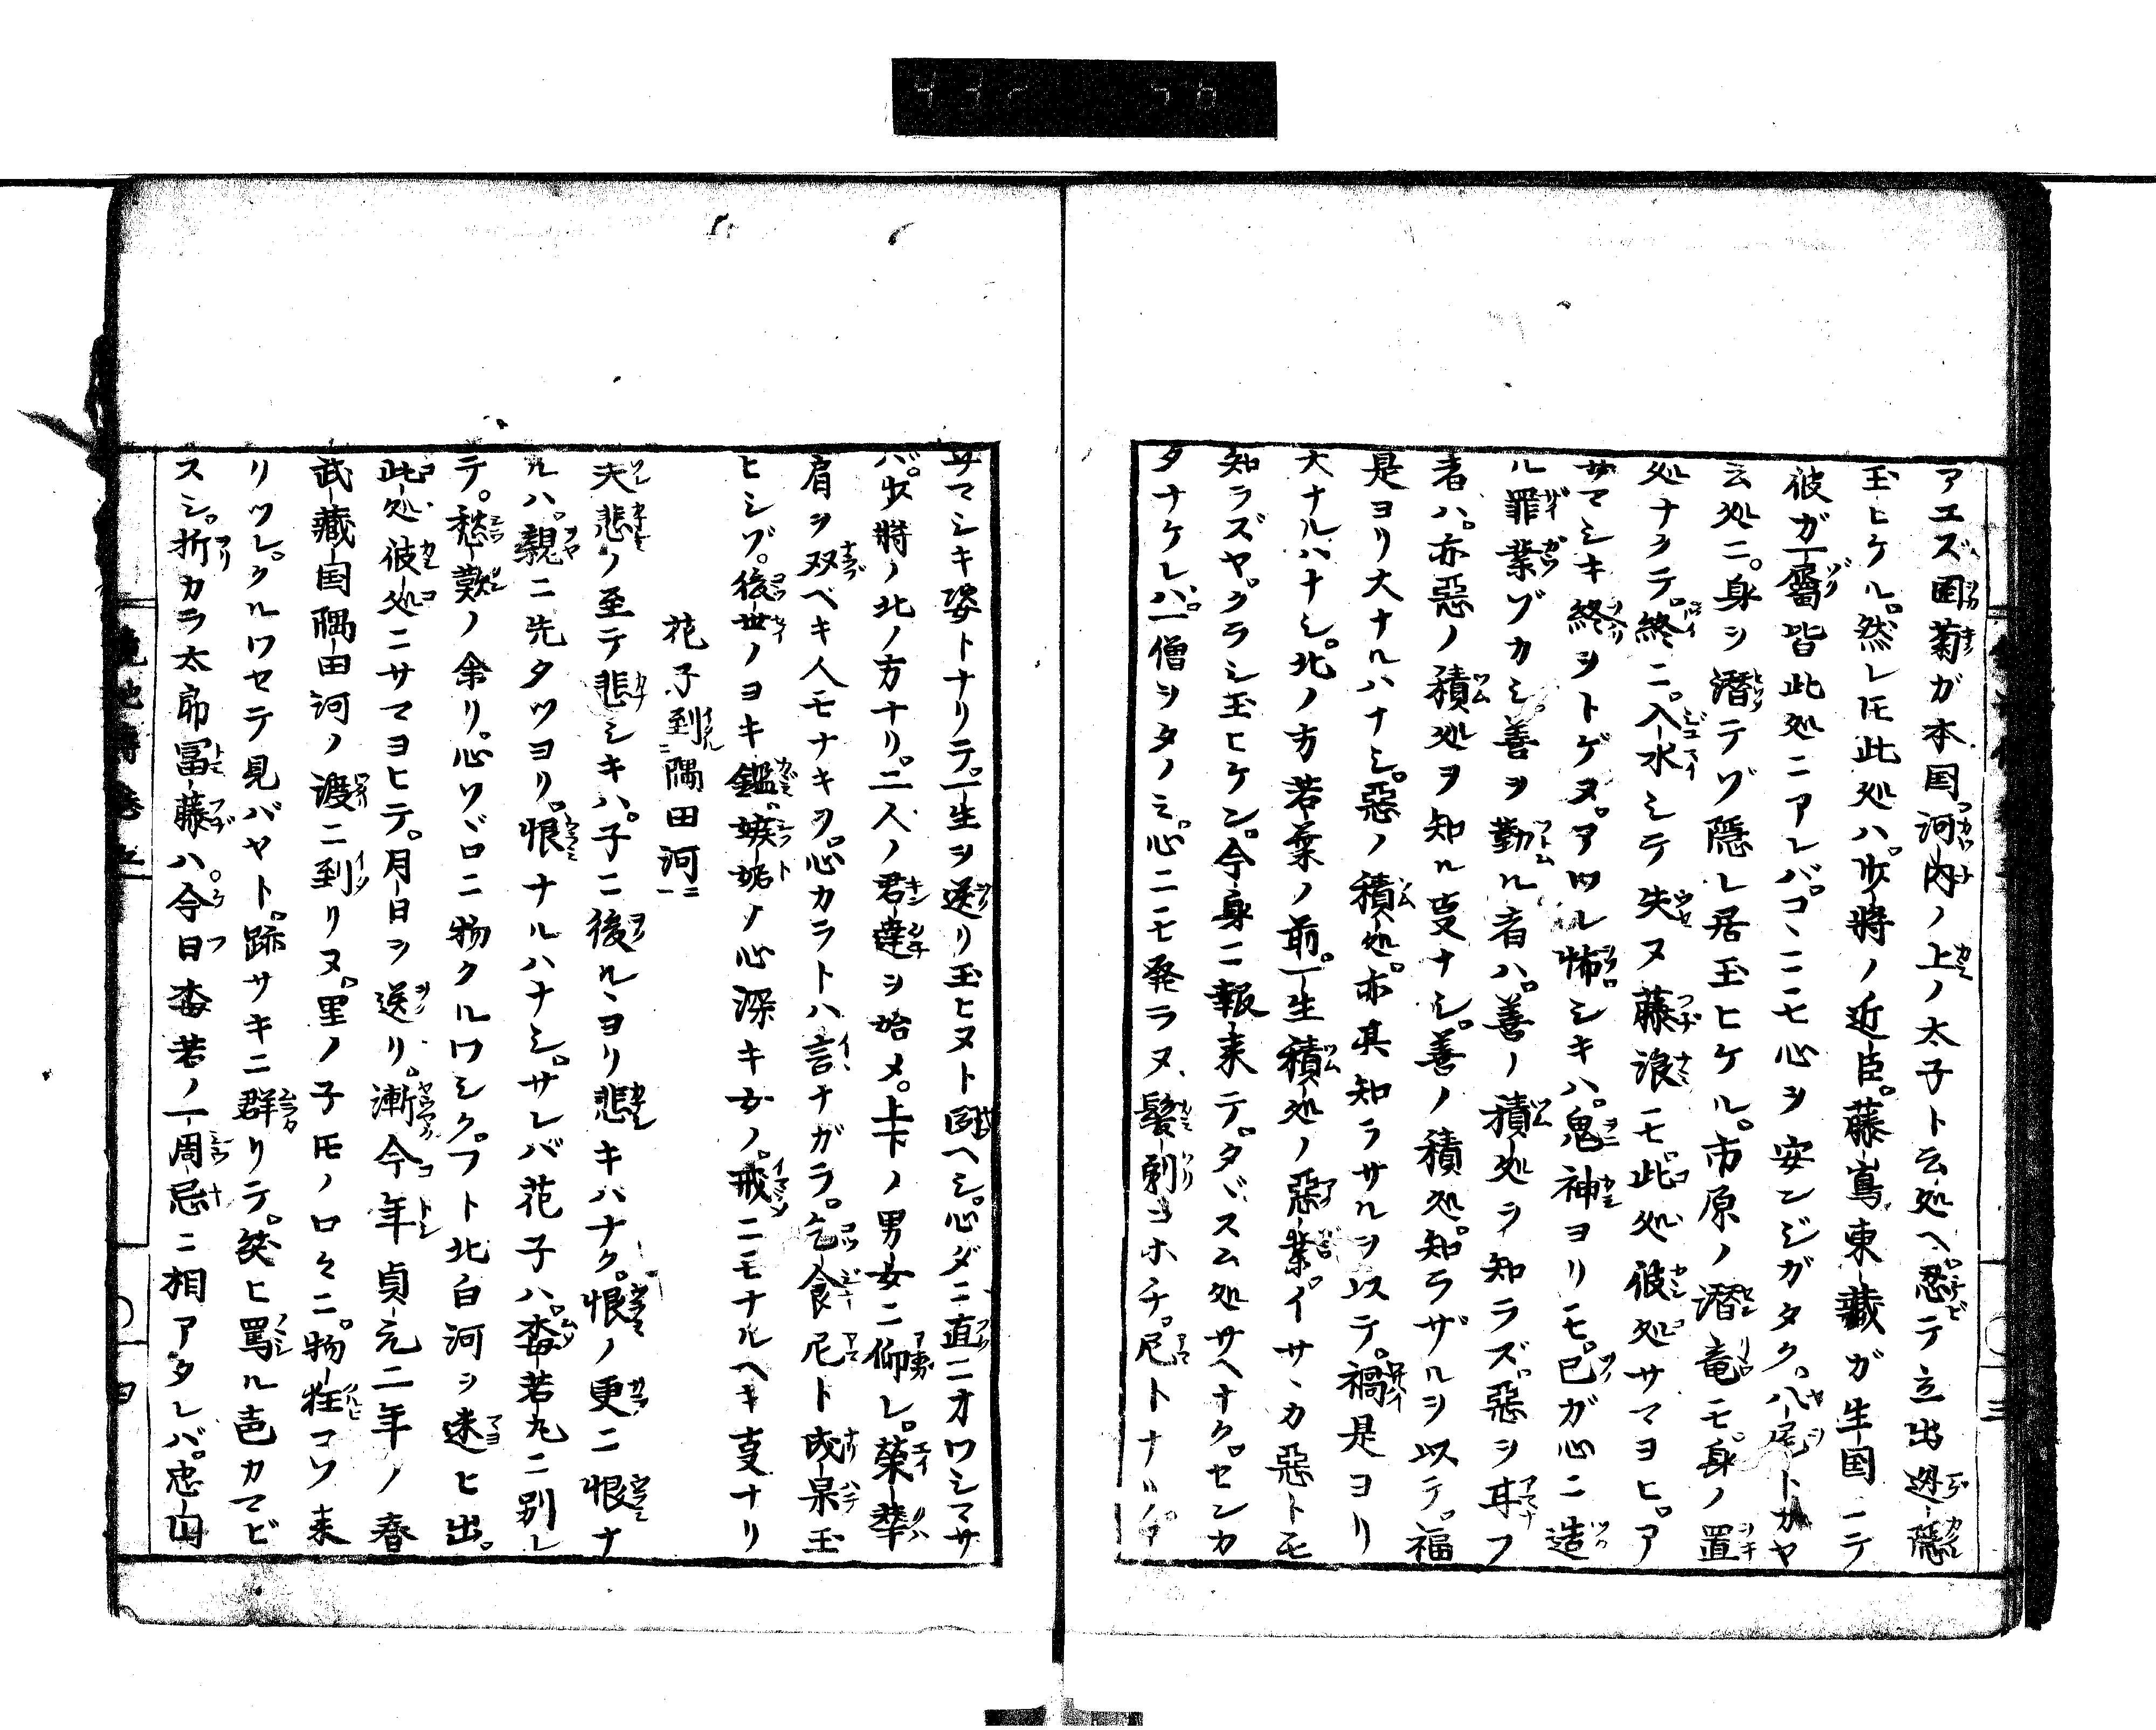 アエズ園菊ガ本国河内ノ上ノ太子ト云処ヘ忍テ立出迯隠
玉ヒケル。然レ𪜈此処ハ。少将ノ近臣。藤嶌東藏ガ生国ニテ
彼ガ一属皆此処ニアレバ。コヽニモ心ヲ安ンジガタク。八尾トカヤ
云処ニ。身ヲ潜テゾ隠レ居玉ヒケル。市原ノ潜竜モ。身ノ置
処ナクテ。終ニ。入水シテ失ヌ藤浪モ。此処彼処サマヨヒ。ア
サマシキ終ヲトゲヌ。アツル怖シキハ。鬼神ヨリモ。己ガ心ニ造
ル罪業ゾカシ。善ヲ勤ル者ハ。善ノ積処ヲ知ラズ。惡ヲ耳フ
者ハ。亦惡ノ積処ヲ知ル叓ナシ。善ノ積処。知ラザルヲ以テ。福
是ヨリ大ナルハナシ。惡ノ積処。亦其知ラサルヲ以テ。禍是ヨリ
大ナルハナシ。北ノ方若葉ノ前。一生積処ノ惡業。イサヽカ惡トモ
知ラズヤ。クラシ玉ヒケン。今身ニ報来テ。タヾスム処サヘナク。センカ
タナケレバ。一僧ヲタノミ。心ニモ発ラヌ髮剃コホチ。尼トナ
サマシキ姿トナリテ。一生ヲ送リ玉ヒヌト聞ヘシ。心ダニ直ニオワシマサ
バ。少将ノ北ノ方ナリ。二人ノ君達ヲ始メ。上下ノ男女ニ仰レ。榮華
肩ヲ双ベキ人モナキヲ。心カラトハ言ナガラ。乞食尼ト成果玉
ヒシゾ。後世ノヨキ鑑。嫉妬ノ心深キ女ノ。戒ニモナルヘキ叓ナリ
花子到隅田河
夫悲ノ至テ悲シキハ。子ニ後ルヽヨリ悲キハナク。恨ノ更ニ恨ナ
ルハ。親ニ先タツヨリ。恨ナルハナシ。サレバ花子ハ。梅若丸ニ別レ
テ。愁歎ノ余リ。心ソヾロニ物クルワシク。フト北白河ヲ迷ヒ出。
此処彼処ニサマヨヒテ。月日ヲ送リ。漸今年貞元二年ノ春
武藏国隅田河ノ渡ニ到リヌ。里ノ子𪜈ノ口々ニ。物狂コソ来
リツレ。クルワセテ見バヤト。跡サキニ群リテ。笑ヒ罵ル邑カマビ
スシ。折カラ太郎冨藤ハ今日梅若ノ一周忌ニ相アタレバ。忠円